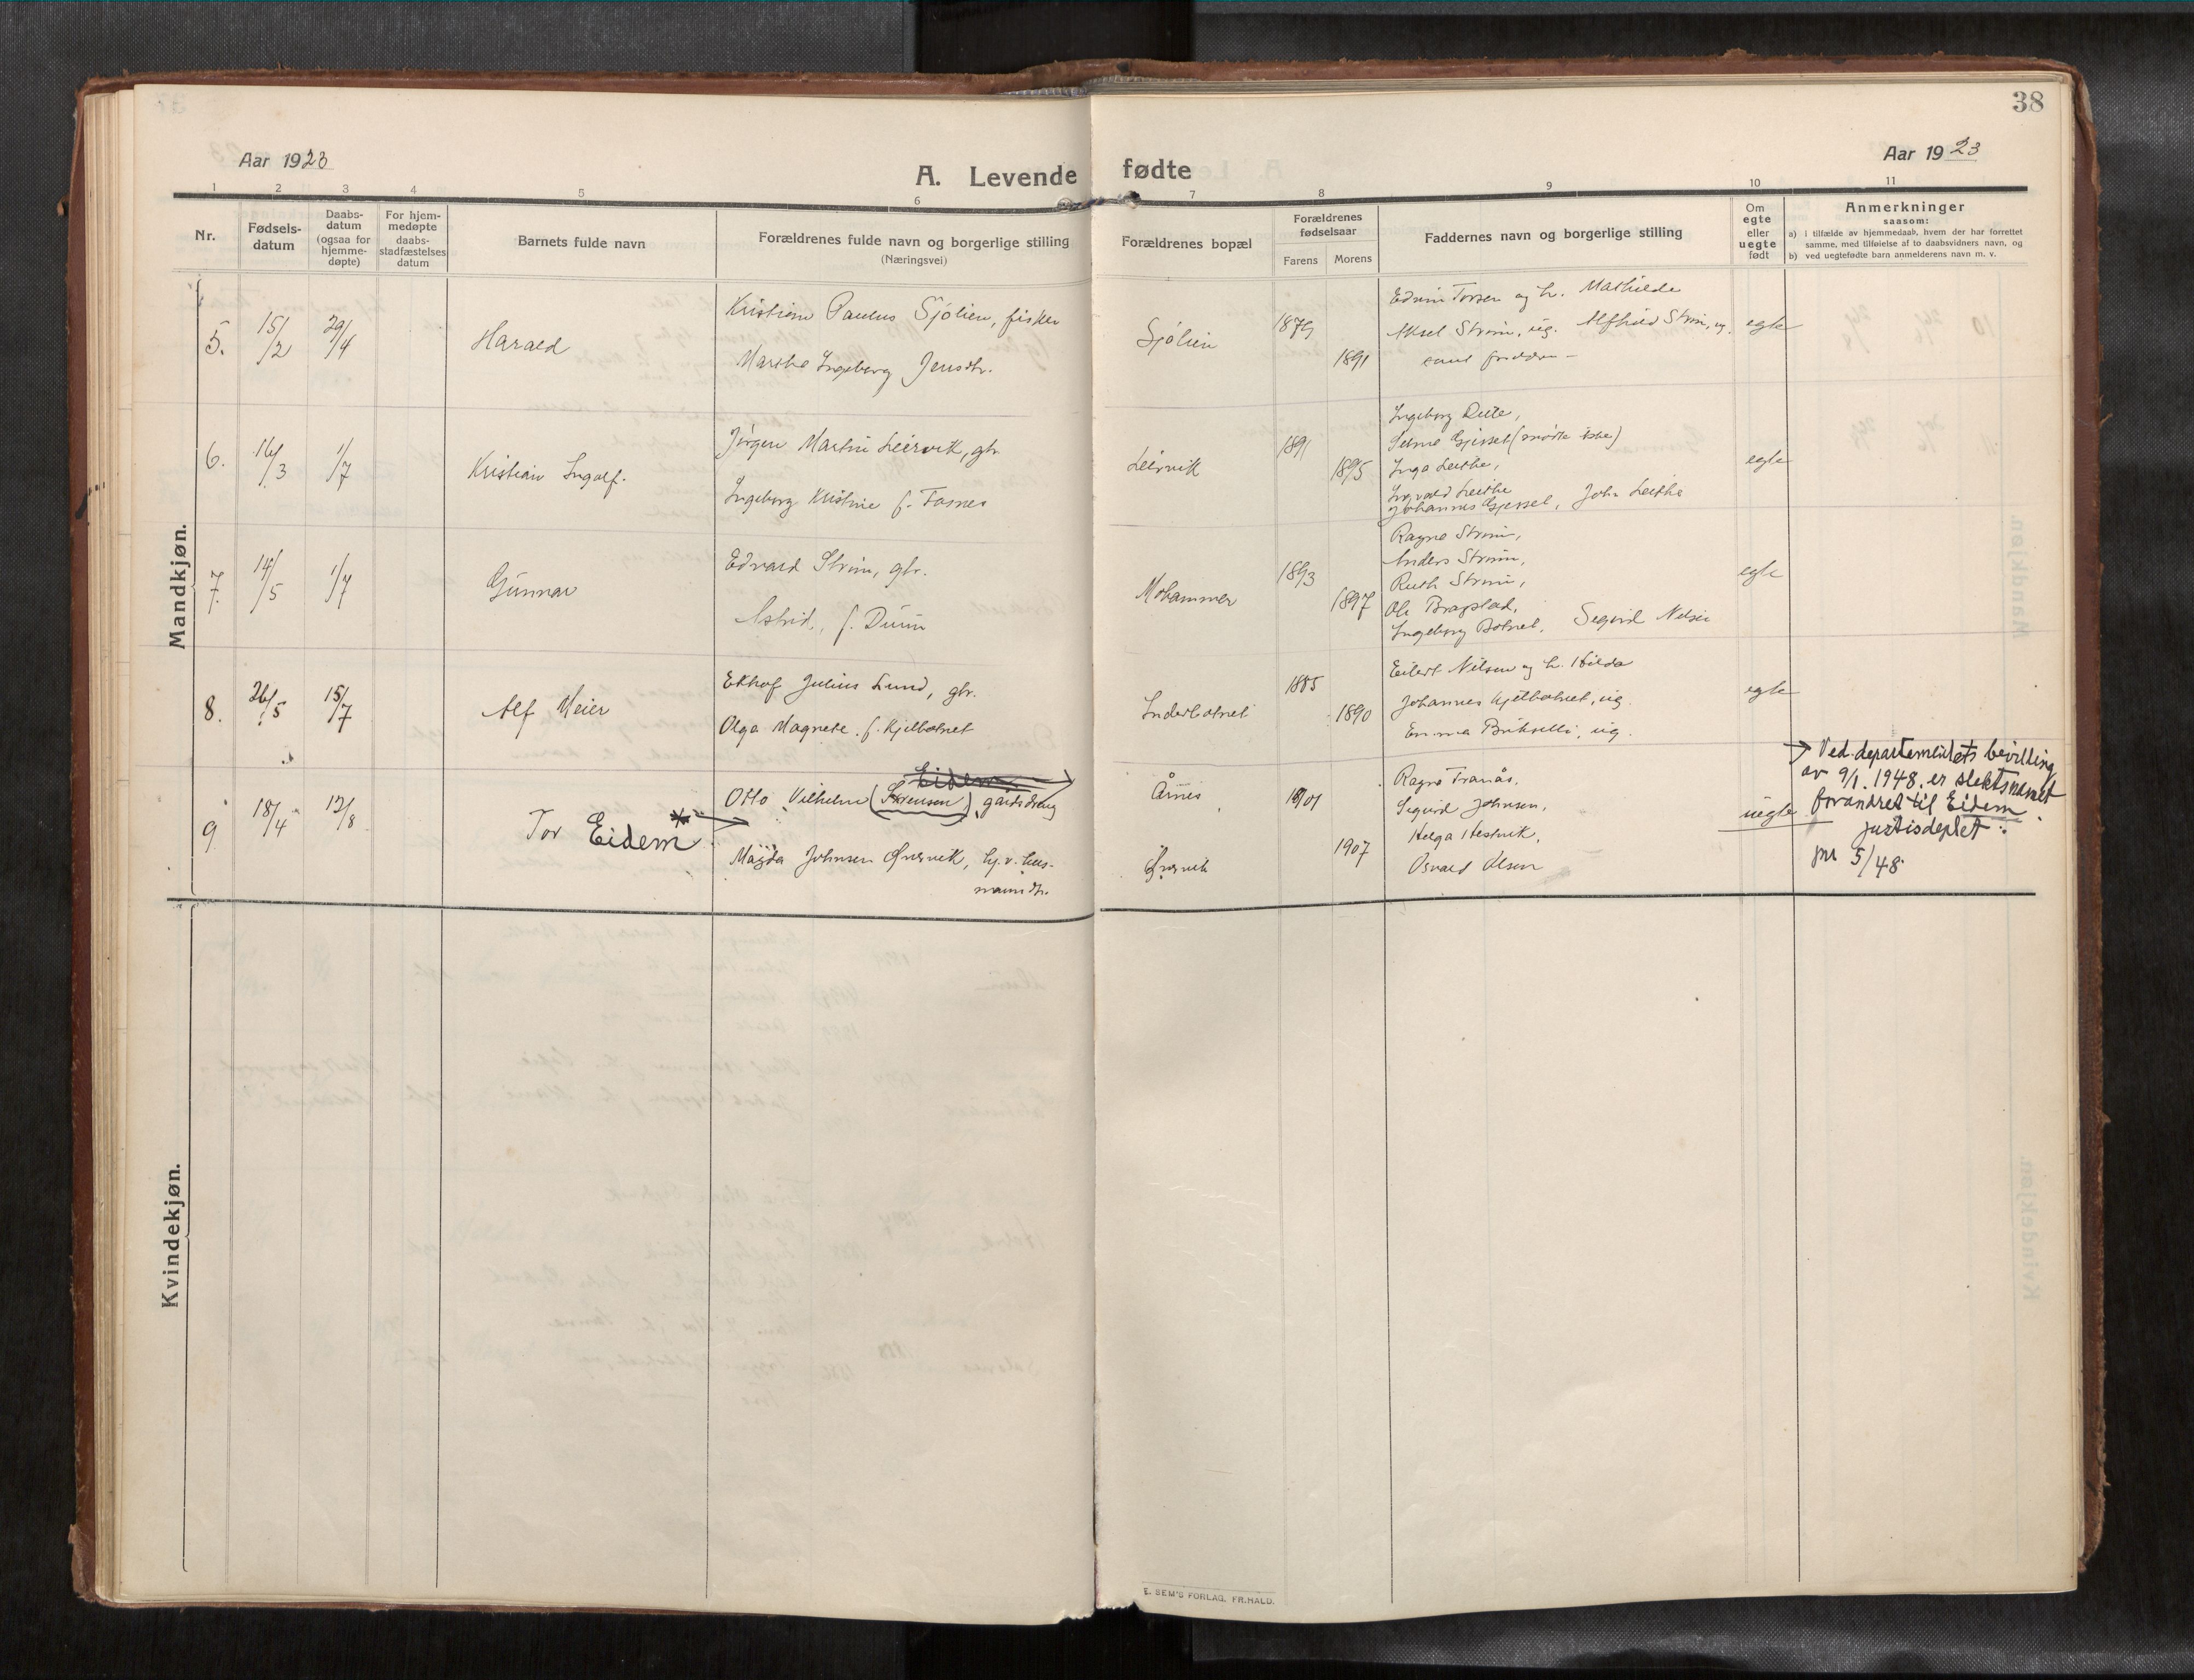 38
Aar 1923
A. Levende fødte
Aar 1923
1 2 3 4 5 6 7 8 9 10 11
Nr.
Fødsels-
datum
Daabs-
datum
(ogsaa for
hjemme-
døpte)
For hjem-
medøpte
daabs-
stadfæstelses
datum
Barnets fulde navn
Forældrenes fulde navn og borgerlige stilling
(Næringsvei)
Forældrenes bopæl
Forældrenes
fødselsaar
Farens Morens
Faddernes navn og borgerlige stilling
Om
egte
eller
uegte
født
Anmerkninger
saasom:
a) i tilfælde av hjemmedaab, hvem der har forrettet
samme, med tilføielse af to daabsvidners navn, og
b) ved uegtefødte barn anmelderens navn m. v.
Mandkjøn.
5. 15/2 29/4 Harald
Kristian Paulus Sjølien, fisker
Marthe Ingeborg Jensdtr.
Sjølien 1879 1891
Edvin Torsen og h. Mathilde
Aksel Strøm, ug. Alfhild Strøm, ug.
samt foreldre
egte
6. 16/3 1/7 Kristian Ingolf.
Jørgen Martin Leirvik, gbr.
Ingeborg Kristine f. Fosnes
Leirvik 1891 1895
Ingeborg
Selma Gjessel (mødte ikke)
Inga Leithe,
Ingvald Leithe
Johannes Gjessel, John Leithe
egte
7. 14/5 1/7 Gunnar
Edvard Strøm, gbr.
Astrid, f. Duun
Mohammer 1893 1897
Ragna Strøm,
Anders Strøm,
Ruth Strøm,
Ole Bragstad,
Ingeborg Botnet, Sigurd Nilsen
egte
8. 26/5 15/7 Alf Meier
Ekhof Julius Lund, gbr.
Olga Magnete f. Kjelbotnet
Inderbotnet 1885 1890
Eilert Nilsen og h. Hilda
Johannes Kjelbotnet, ug.
Emma, ug.
egte
9 18/4 12/8 Tor Eidem *
Eidem
Otto Vilhelm (Sørensen), gaardsdreng
Magda Johnsen Ørsvik, hj.v. hus-
mannsdtr.
Årnes
Ørsvik
1901 1907
Ragna Tranås,
Sigurd Johnsen,
Helga Hestvik,
Osvald Olsen
uegte
Ved departementets bevilling
av 9/1. 1948. er slektsnavnet
forandret til Eidem.
justisdeptet
jnr 5/48
Kvindekjøn.
E. SEM'S FORLAG, FR.HALD.